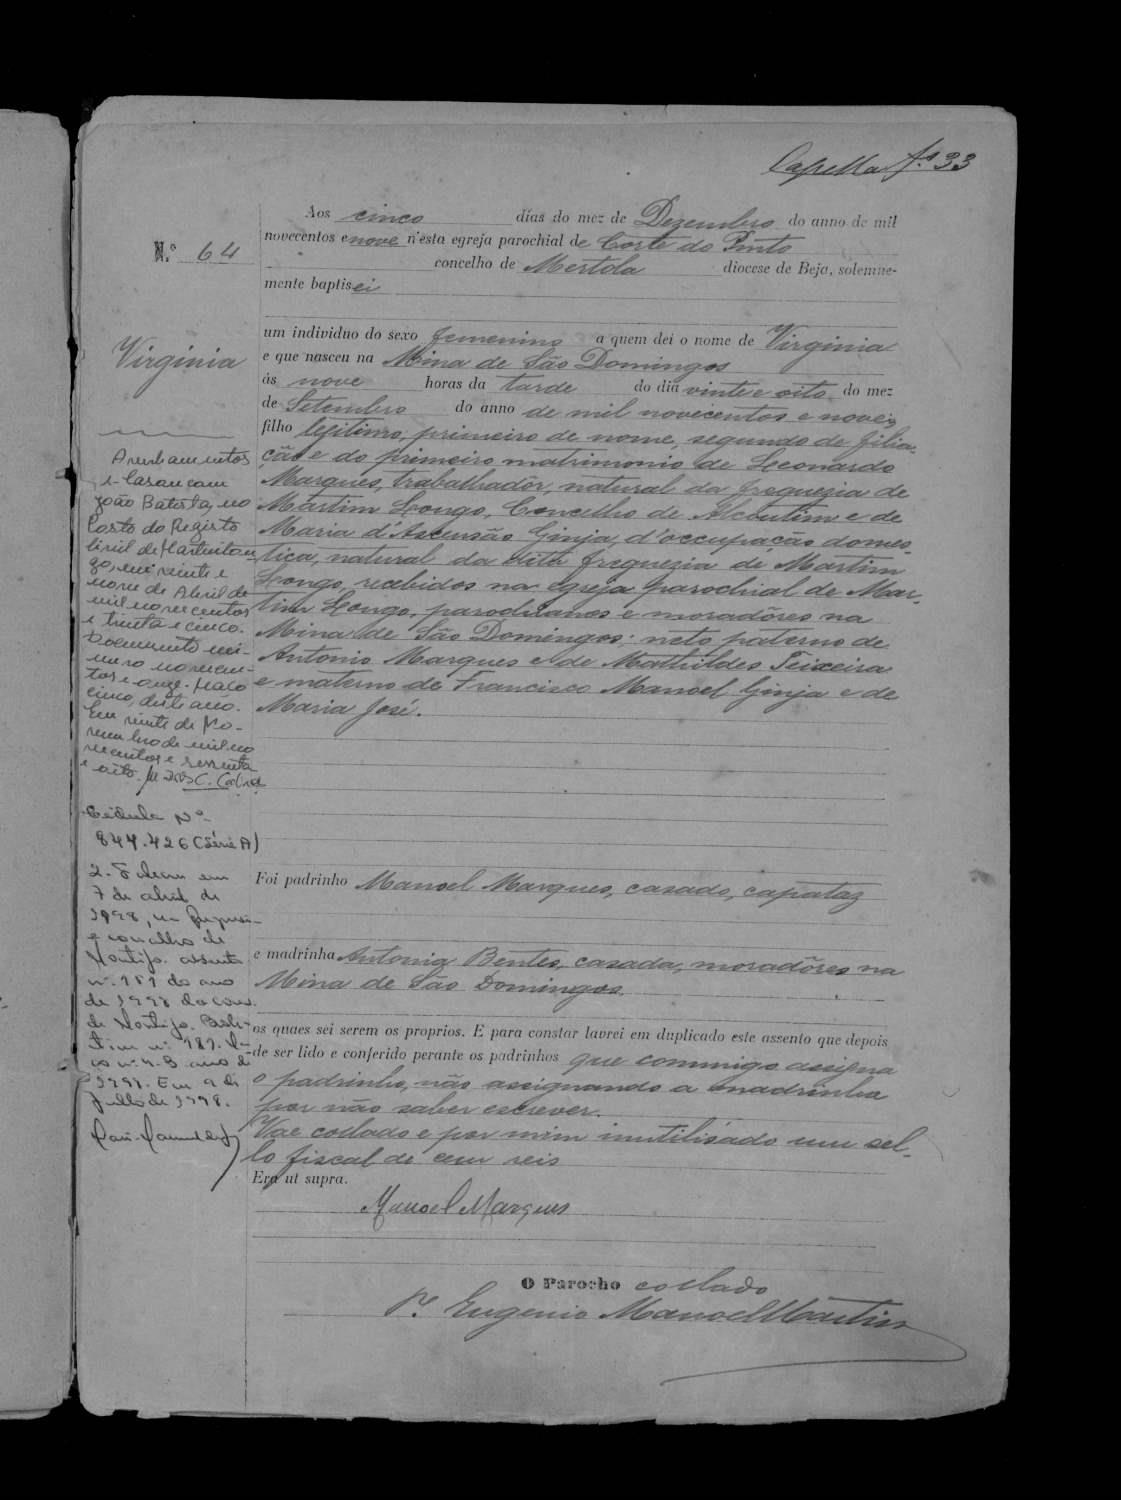 Capella fs 33
Aos cinco dias do mez de Dezembro do anno de mil
novecentos e nove n'esta egreja parochial de Corte do Pinto
Nº 64
concelho de Mertola diocese de Beja, solemne-
mente baptisei
um individuo do sexo femenino a quem dei o nome de Virginia
Virginia
e que nasceu na Mina de São Domingos
ás nove horas da tarde do dia vinte e oito do mez
de Setembro do anno de mil novecentos e nove
filho legitimo, primeiro de nome, segundo de filia-
ção e do primeiro matrimonio de Leonardo
Marques, trabalhadôr, natural da freguezia de
Martim Longo, Concelho de Alcoutim e de
Maria d'Ascensão Ginja, d'occupação domes-
tica, natural da dita freguezia de Martim
Longo, recebidos na egreja parochial de Mar-
tim Longo, parochianos e moradôres na
Mina de São Domingos; neto paterno de
Antonio Marques e de Mathildes Teixeira
e materno de Francisco Manoel Ginja e de
Maria José.
Foi padrinho Manoel Marques, casado, capataz
e madrinha Antonia Bentes, casada, moradôres na
Mina de São Domingos
os quaes sei serem os proprios. E para constar lavrei em duplicado este assento que depois
de ser lido e conferido perante os padrinhos que commigo assigna
o padrinho, não assignando a madrinha
por não saber escrever.
Vae collado e por mim inutilisado um sel-
lo fiscal de cem reis
Era ut supra.
Manoel Marques
O Parocho collado
Pe. Eugenio Manoel Martins
Averbamentos
Casou com
João Batista, no
Posto do Registo
Civil de Martinlon
go, em vinte e
nove de Abril de
mil novecentos
e trinta e cinco.
Documento nú-
mero novecen-
tos e onze. Maço
cinco, deste ano.
Em vinte de No-
vembro de mil no
vecentos e sessenta
e oito.
Cédula Nº
844.426 (Série A)
2. Faleceu em
7 de abril de
1998, na freguesia
e concelho de
Montijo. assento
nº. 181 do ano
de 1998 da cons.
de Montijo. Bole-
tim nº 181.
ço nº 4-B ano de
1998. Em 9 de
Julho de 1998.